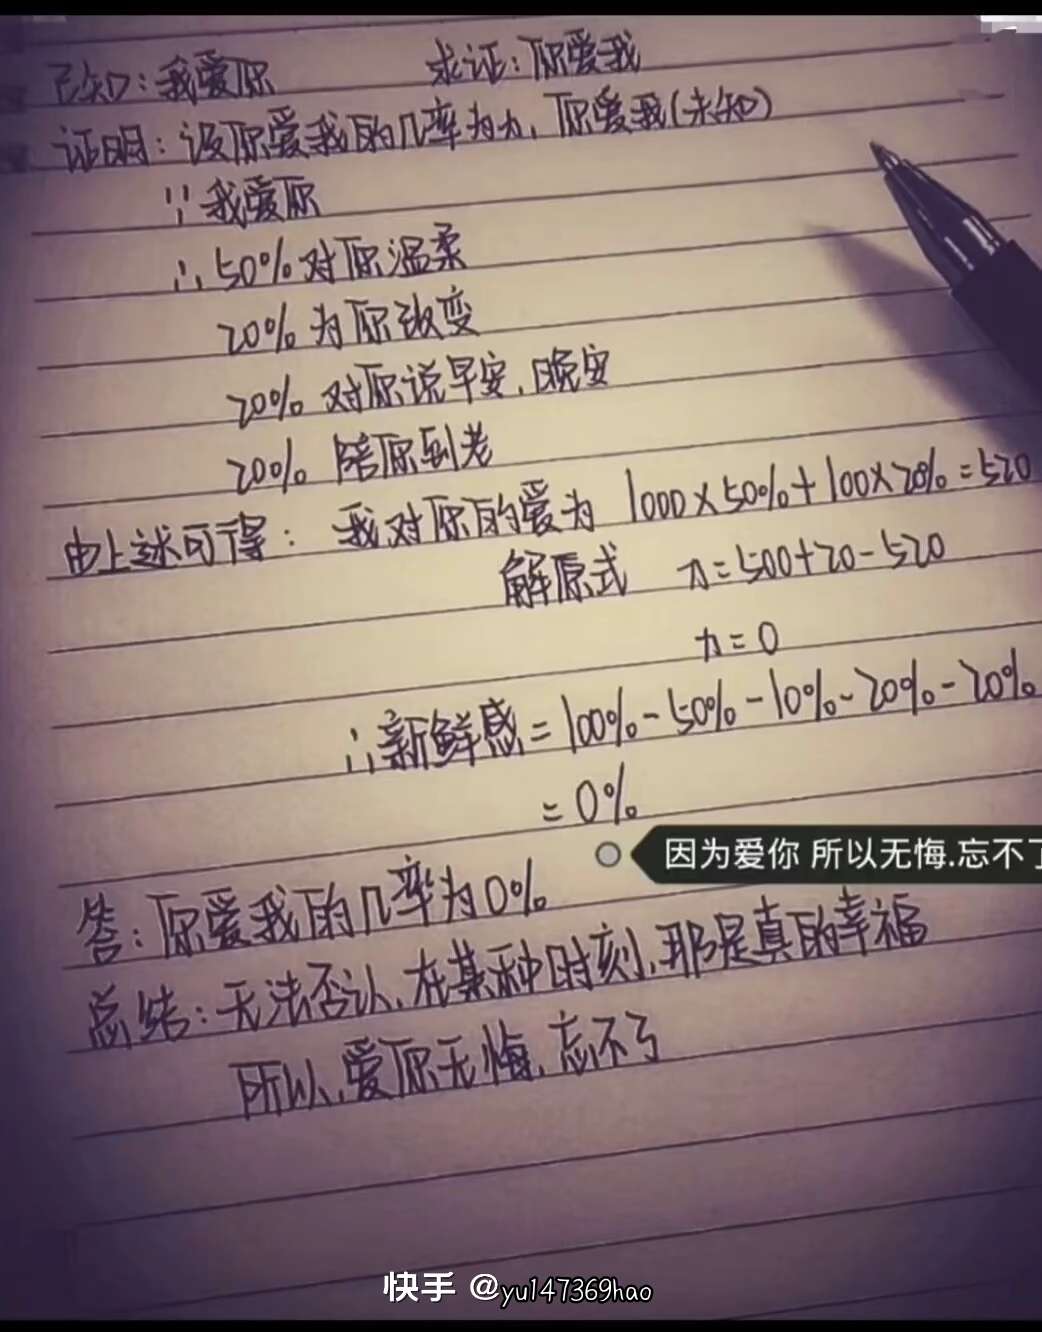 已知：我爱你 求证：你爱我
证明：设你爱我的几率为x，你爱我(未知)
∵我爱你
∴50%对你温柔
20%为你改变
20%对你说早安，晚安
20%陪你到老
由上述可得：我对你的爱为1000×50%+100×20%=520
解原式 x=500+20-520
x=0
∴新鲜感=100%-50%-10%-20%-20%
=0%
因为爱你 所以无悔.忘不了
答：你爱我的几率为0%
总结：无法否认，在某种时刻，那是真的幸福
所以，爱你无悔，忘不了
快手 @yu147369hao